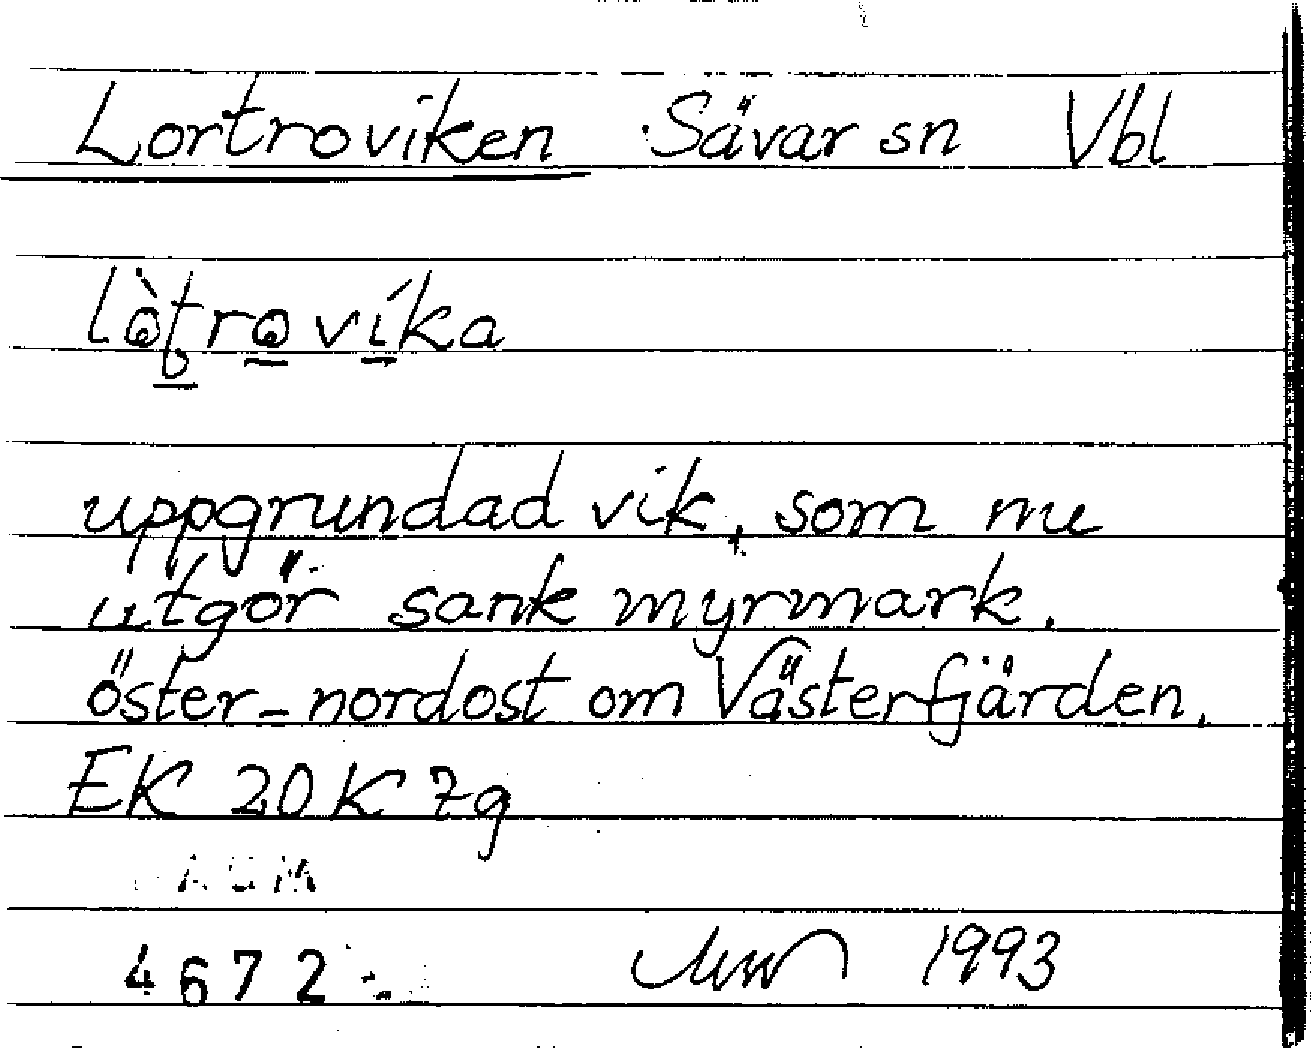 Lortroviken Sävar sn Vbl
lòtrovíka
uppgrundad vik, som nu
utgör sank myrmark.
öster-nordost om Västerfjärden.
EK 20K 7g
4672
1993